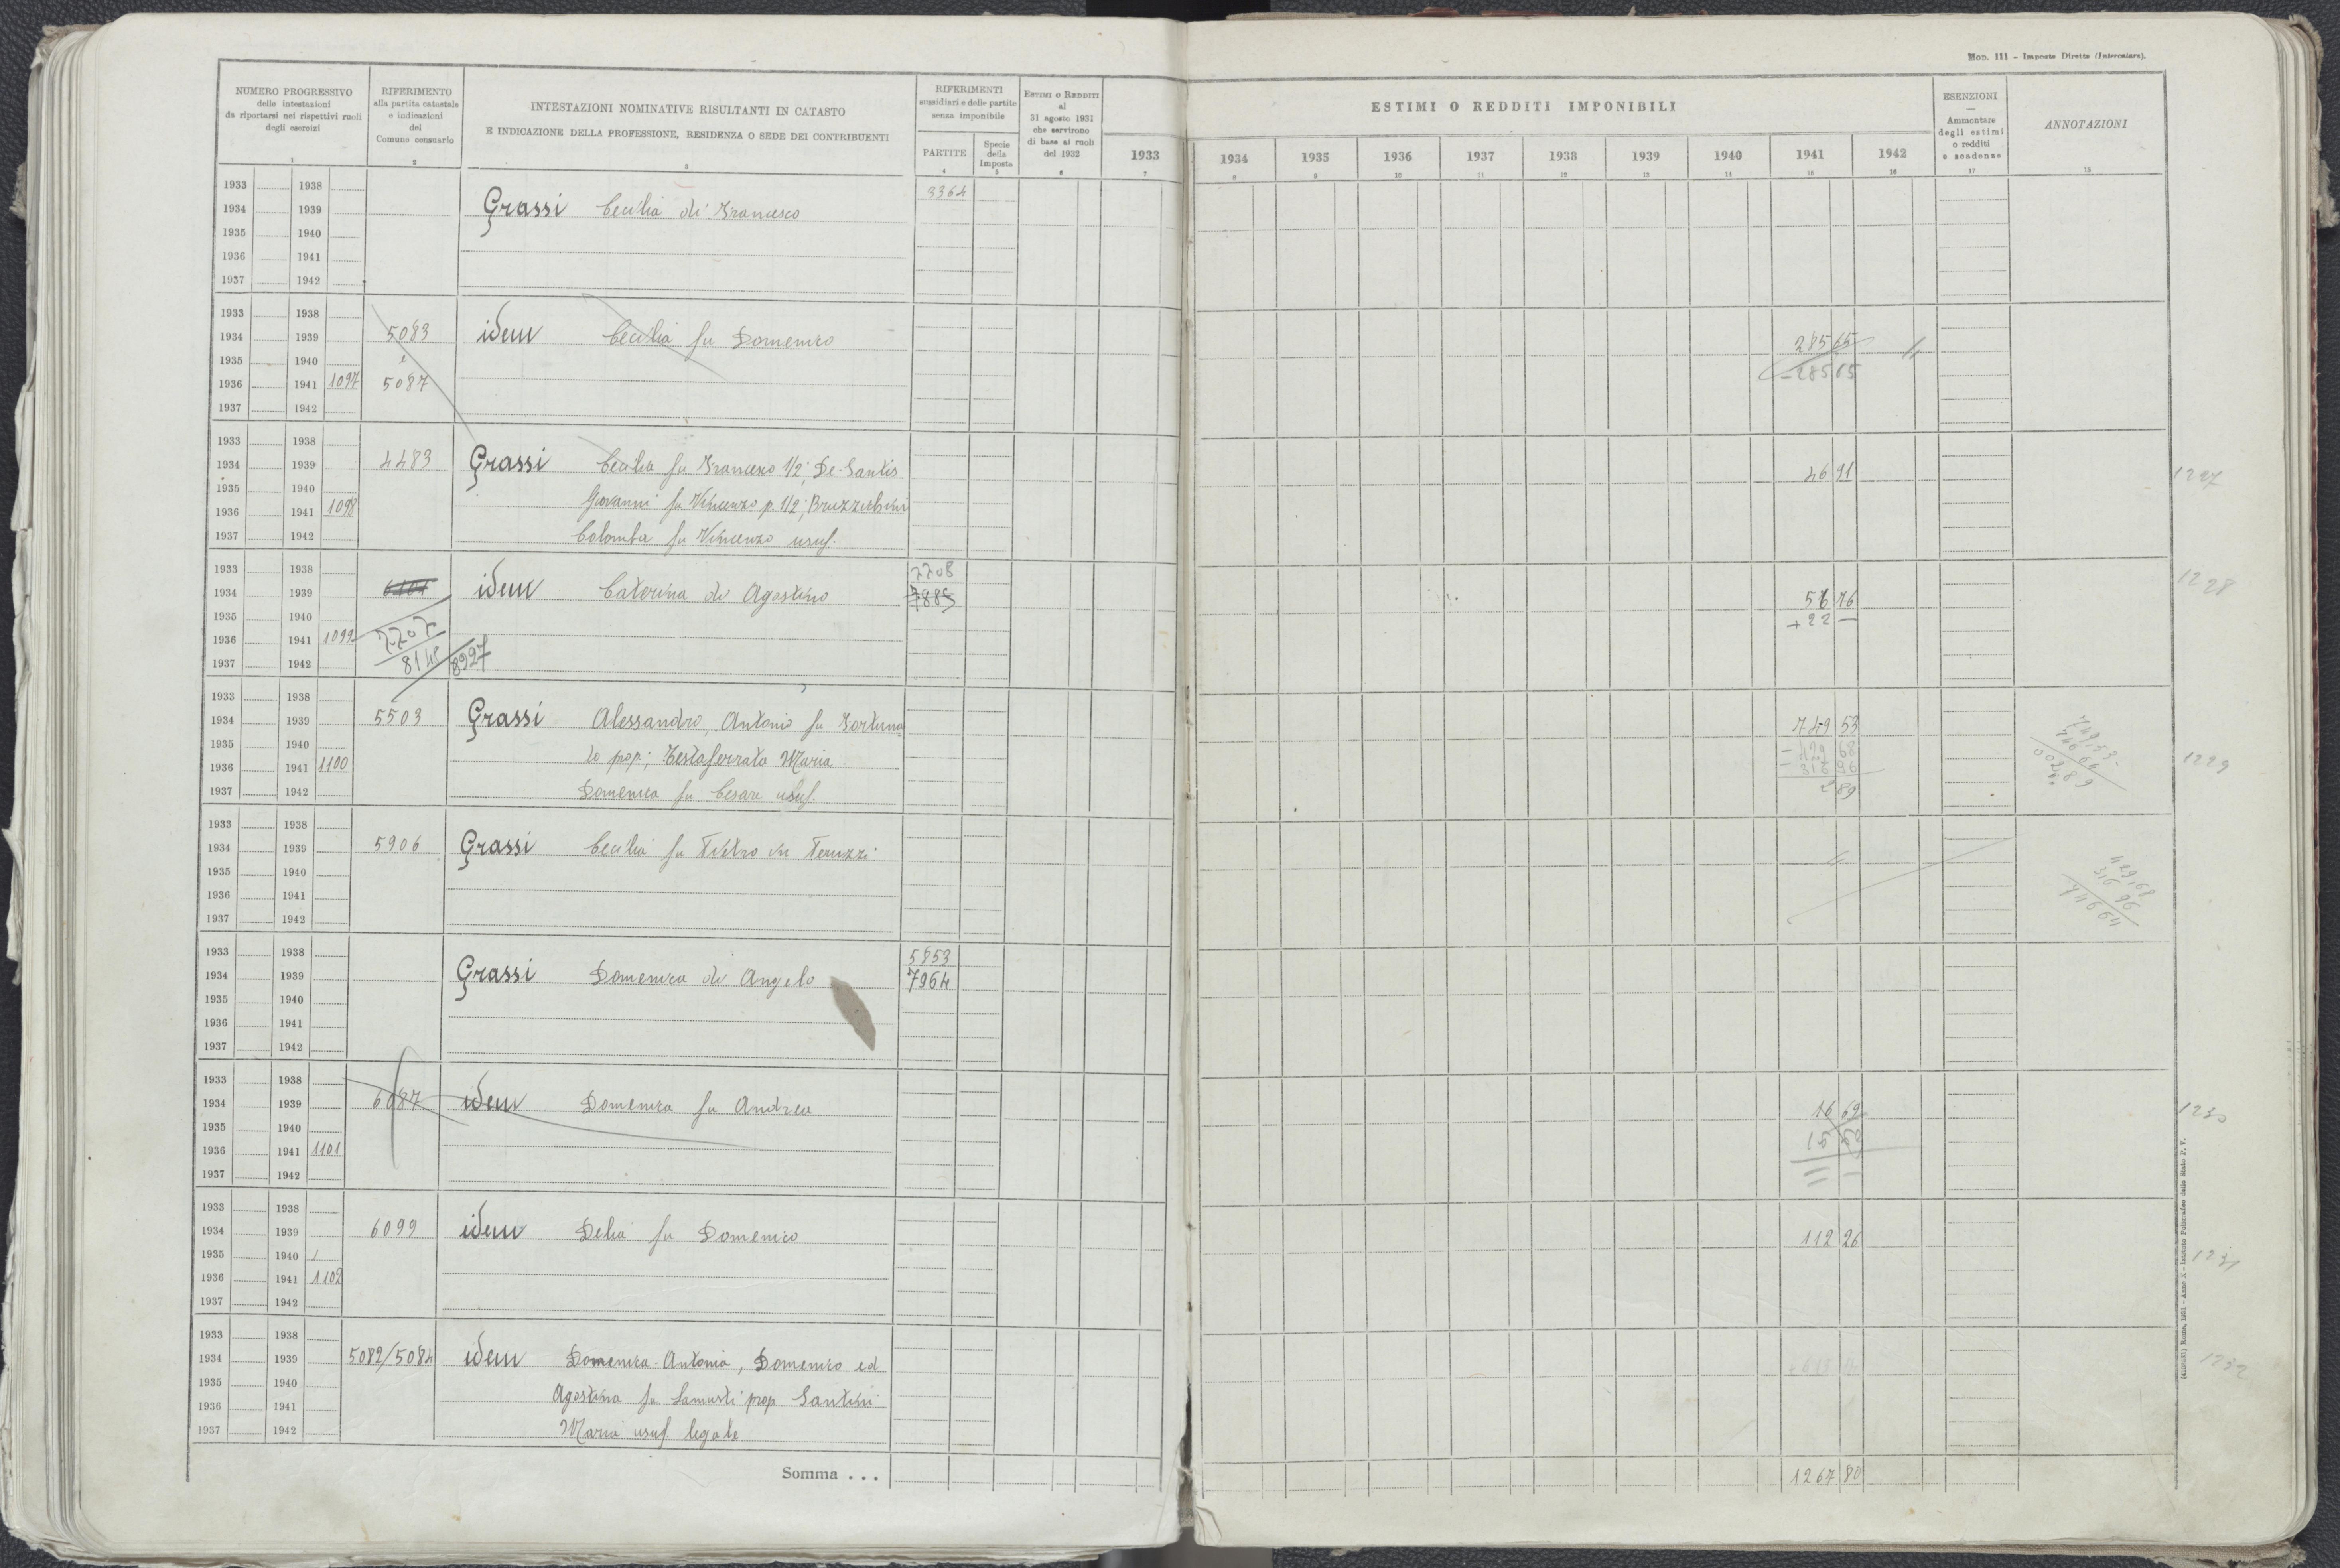 Mod. 111 - Imposte Dirette (Intercalare).
NUMERO PROGRESSIVO
delle intestazioni
da riportarsi nei rispettivi ruoli
degli esercizi
1
RIFERIMENTO
alla partita catastale
e indicazioni
del
Comune censuario
2
INTESTAZIONI NOMINATIVE RISULTANTI IN CATASTO
E INDICAZIONE DELLA PROFESSIONE, RESIDENZA O SEDE DEI CONTRIBUENTI
3
RIFERIMENTI
sussidiari e delle partite
senza imponibile
PARTITE
4
Specie
della
Imposta
5
ESTIMI O REDDITI
al
31 agosto 1931
che servirono
di base ai ruoli
del 1932
6
ESTIMI O REDDITI IMPONIBILI
1933 1934 1935 1936 1937 1938 1939 1940 1941 1942
7 8 9 10 11 12 13 14 15 16
ESENZIONI
Ammontare
degli estimi
o redditi
e scadenze
17
ANNOTAZIONI
18
1933 1938 3364
1934 1939 Grassi Cecilia di Francesco
1935 1940
1936 1941
1937 1942
1933 1938
1934 1939 5083 idem Cecilia fu Domenico 285 65
1935 1940 e
1936 1941 1097 5087 - 285 65
1937 1942
1933 1938
1934 1939 4483 Grassi Cecilia fu Francesco 1/2; De-Santis 46 91 1227
1935 1940
1936 1941 1098 Giovanni fu Vincenzo p. 1/2; Bruzzichini
1937 1942 Colomba fu Vincenzo usuf.
1933 1938 2208 1228
1934 1939 idem Caterina di Agostino 7885 56 76
1935 1940 2207 + 22 —
1936 1941 1099
1937 1942 8145 8927
1933 1938
1934 1939 5503 Grassi Alessandro, Antonio fu Fortuna= 749 53 749,53-
1935 1940 to prop; Testaferrata Maria - 429 68 746 64
1936 1941 1100 - 316 96 002,89 1229
1937 1942 Domenica fu Cesare usuf. 2 89
1933 1938
1934 1939 5906 Grassi Cecilia fu Pietro in Peruzzi 429,68
1935 1940 316 96
1936 1941 746 64
1937 1942
1933 1938 5853
1934 1939 Grassi Domenica di Angelo 7964
1935 1940
1936 1941
1937 1942
1933 1938
1934 1939 6087 idem Domenica fu Andrea 16 62 1230
1935 1940
1936 1941 1101
1937 1942
1933 1938
1934 1939 6099 idem Delia fu Domenico 112 26
1935 1940 1231
1936 1941 1102
1937 1942
1933 1938
1934 1939 5082/5084 idem Domenica-Antonia, Domenico ed 1232
1935 1940 Agostina fu prop Santini
1936 1941
1937 1942 Maria usuf legale
Somma . . . 1267 80